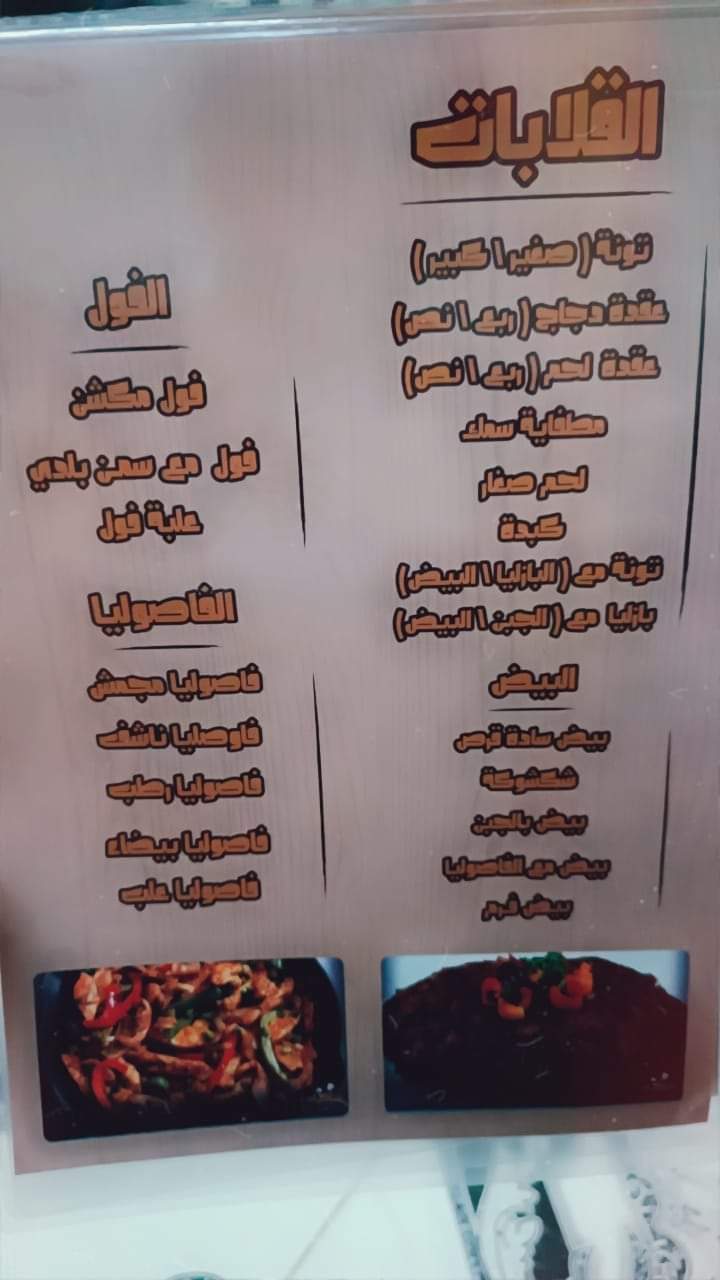 القلابات
تونة (صغير \ كبير)
عقدة دجاج (ربع \ نص)
عقدة لحم (ربع \ نص)
مطفاية سمك
لحم صغار
كبدة
تونة مع (البازليا \ البيض)
بازليا مع (الجبن \ البيض)
البيض
بيض سادة قرص
شكشوكة
بيض بالجبن
بيض مع الفاصوليا
بيض فرم
الفول
فول مكشن
فول مع سمن بلدي
علبة فول
الفاصوليا
فاصوليا مجمش
فاوصليا ناشف
فاصوليا رطب
فاصوليا بيضاء
فاصوليا علب